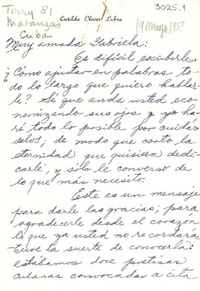 Tirry 81
Matanzas
Cuba
Carilda Oliver Labra
3025.1
19 Marzo, 1953
Muy amada Gabriela:
Es difícil escribirle.
¿Cómo ajustar en palabras to-
do lo largo que quiero hablar-
le? Sé que anda usted eco-
nomizando sus ojos y yo ha-
ré todo lo posible por cuidár-
selos; de modo que corto la
eternidad que quisiera dedi-
carle, y sólo le converso de
lo que más necesito.
Este es un mensaje
para darle las gracias; para
agradecerle desde el corazón
lo que ya usted no recordará.
Tuve la suerte de conocerla:
estábamos doce poetisas
cubanas convocadas a cita